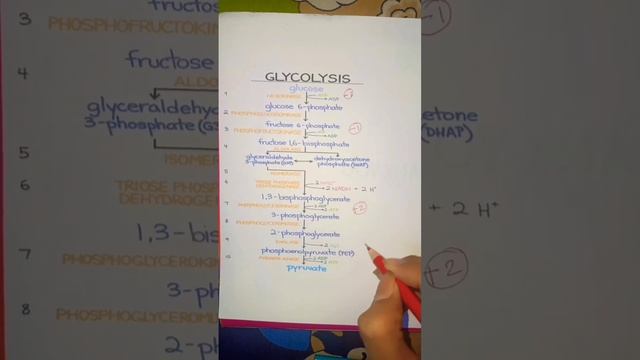 GLYCOLYSIS
glucose
1 HEXOKINASE ATP -1
ADP
glucose 6-phosphate
2 PHOSPHOGLUCOISOMERASE
fructose 6-phosphate
3 PHOSPHOFRUCTOKINASE ATP -1
ADP
fructose 1,6-bisphosphate
4 ALDOLASE
glyceraldehyde dihydroxyacetone
3-phosphate (G3P) phosphate (DHAP)
5 ISOMERASE
6 TRIOSE PHOSPHATE 2 NAD+
DEHYDROGENASE 2 NADH + 2 H+
1,3-bisphosphoglycerate
7 PHOSPHOGLYCEROKINASE 2 ADP +2
2 ATP
3-phosphoglycerate
8 PHOSPHOGLYCEROMUTASE
2-phosphoglycerate
9 ENOLASE 2 H2O
phosphoenolpyruvate (PEP)
10 PYRUVATE KINASE 2 ADP
2 ATP
pyruvate
3
PHOSPHOFRUCTOKIN
fructose
4
ALDO
glyceraldehy
3-phosphate (G3
5
ISOMER
6
TRIOSE PHOSP
DEHYDROGEN
1,3-bis
7
PHOSPHOGLYCEROKI
3-ph
8
PHOSPHOGLYCEROM
2-ph
-1
cetone
(DHAP)
+ 2 H+
+2